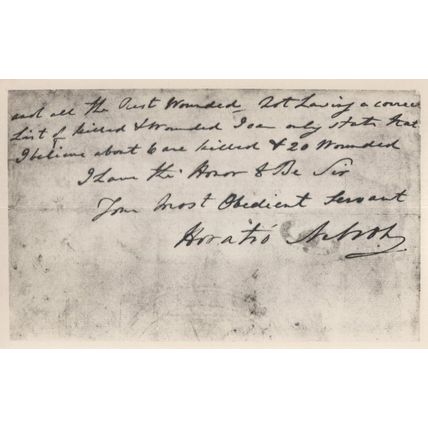 and all the Rest Wounded Not having a correct
List of killed & Wounded I can only state that
I believe about 6 are killed & 20 Wounded
I have the Honor to Be Sir
Your Most Obedient Servant
Horatio Nelson